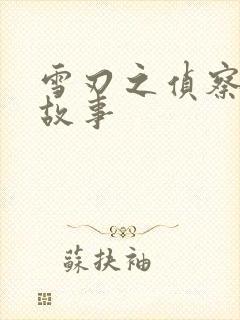 雪刃之偵察
故事
蘇扶袖